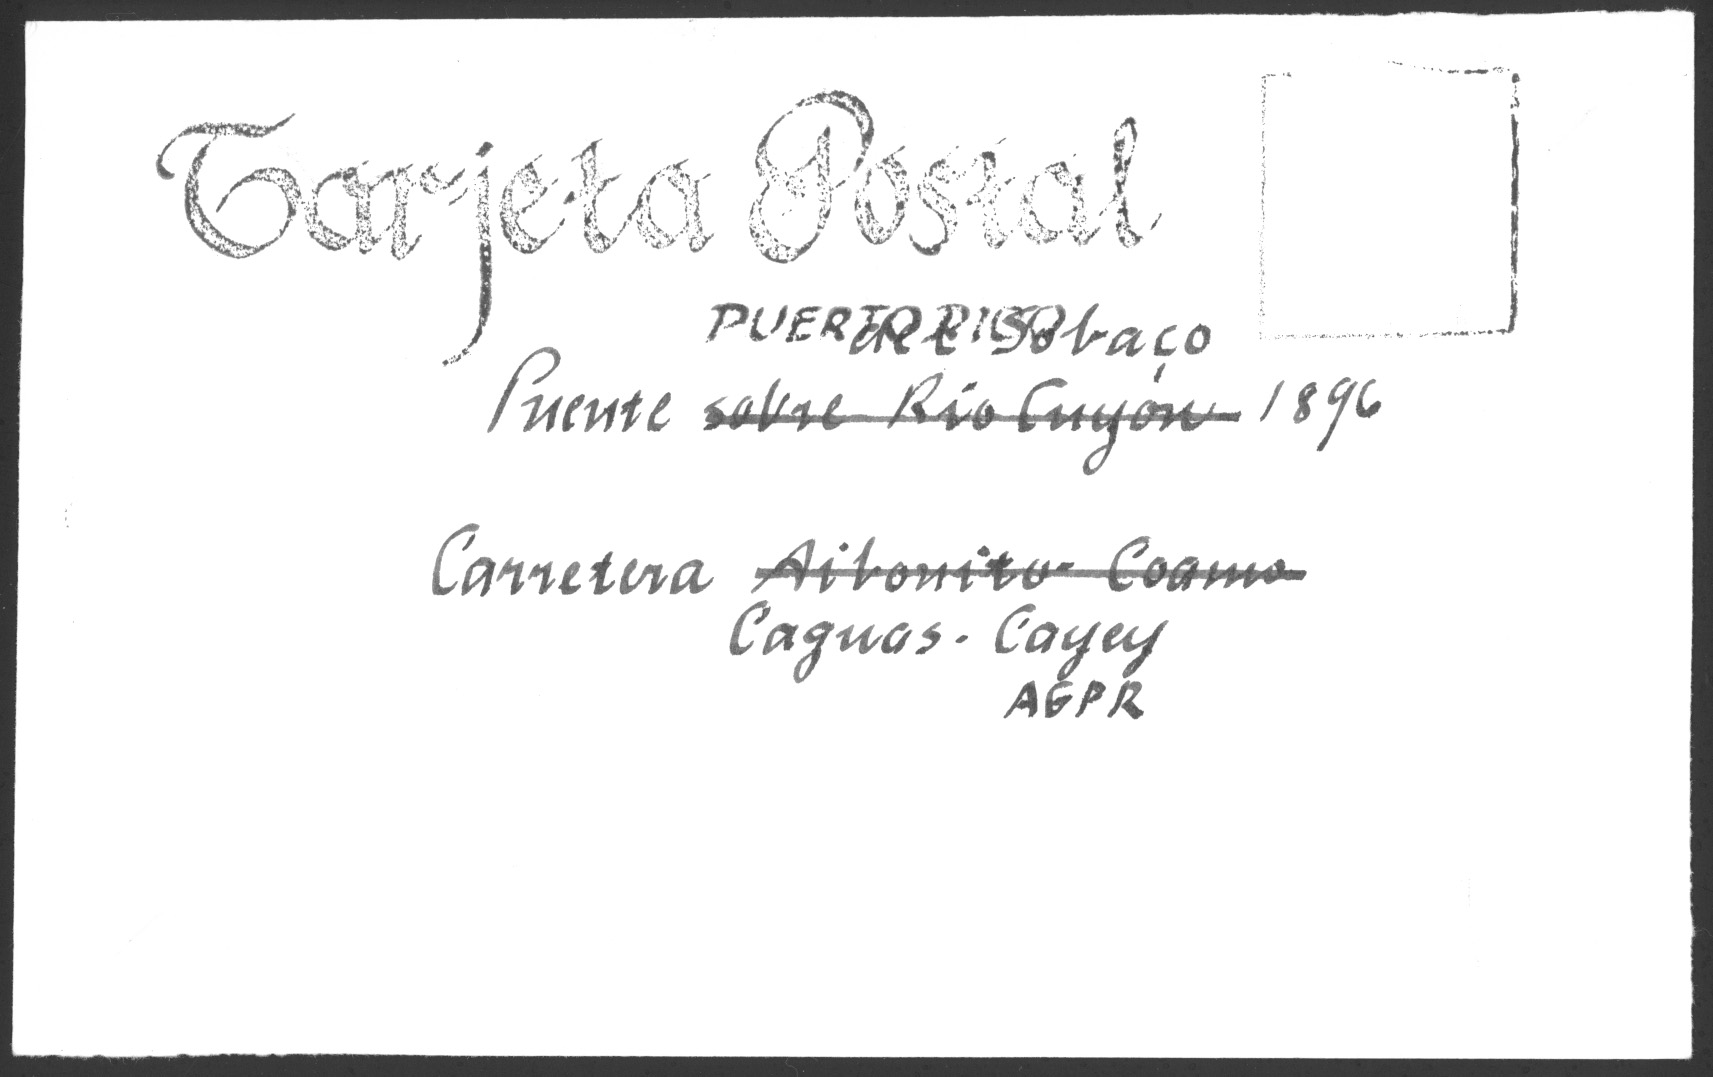 Tarjeta Postal
PUERTO RICO
del Sobaco
Puente sobre Río Cuyón 1896
Carretera Aibonito - Coamo
Caguas - Cayey
AGPR